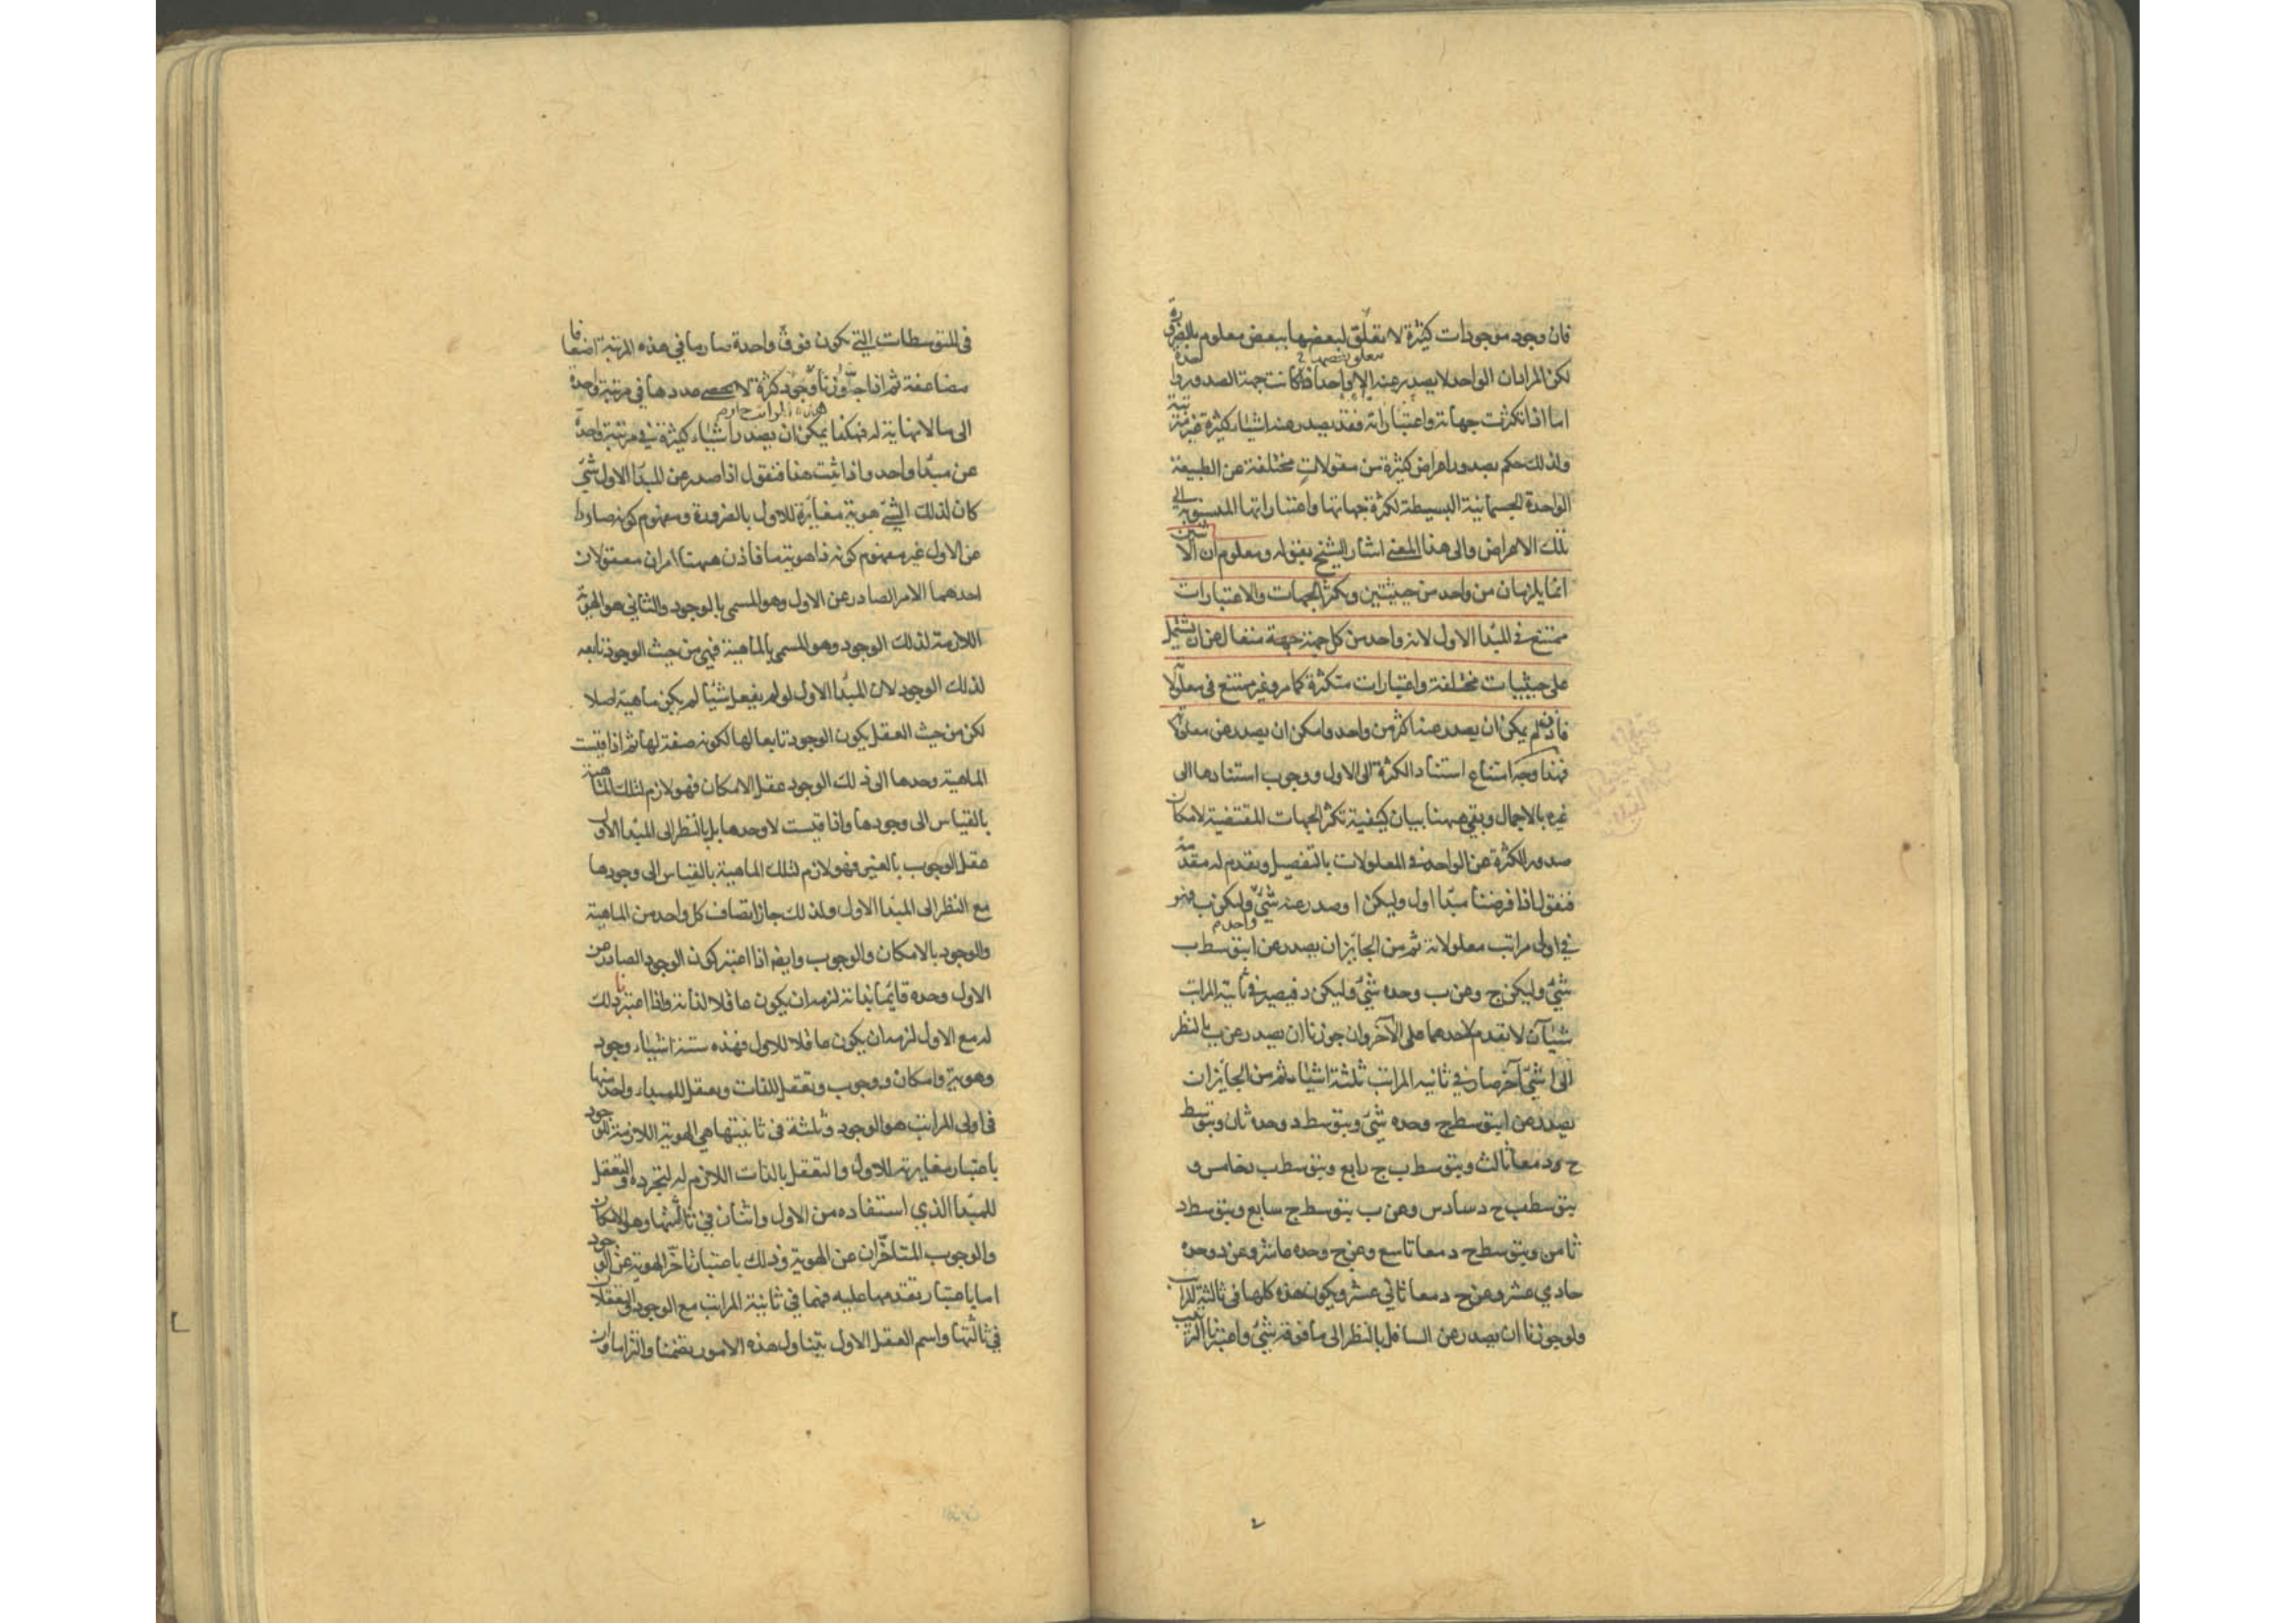 فان وجود موجودات كثيرة لا تعلق لبعضها ببعض معلوم بالضرورة
لكن المراد ان الواحد لا يصدر عنه الا واحد اذا كانت جهة الصدور واحدة
اما اذا تكثرت جهاته واعتباراته فقد يصدر عنه اشياء كثيرة غير مترتبة
ولذلك حكم بصدور اعراض كثيرة من مقولات مختلفة عن الطبيعة
الواحدة الجسمانية البسيطة لكثرة جهاتها واعتباراتها المنسوبة الى
تلك الاعراض والى هذا المعنى اشار الشيخ بقوله ومعلوم ان الاثنين
انما يلزمان من واحد من حيثيتين وتكثر الجهات والاعتبارات
ممتنع في المبدأ الاول لانه واحد من كل جهة متعال عن ان يشتمل
على حيثيات مختلفة واعتبارات متكثرة كما مر وغير ممتنع في معلولاته
فاذن لم يمكن ان يصدر عنه اكثر من واحد وامكن ان يصدر عن معلولاته
فهذا وجه امتناع استناد الكثرة الى الاول ووجوب استنادها الى
غيره بالاجمال وبقي ههنا بيان كيفية تكثر الجهات المقتضية لامكان
صدور الكثرة عن الواحد في المعلولات بالتفصيل ونقدم له مقدمة
فنقول اذا فرضنا مبدأ اول وليكن ا وصدر عنه شئ واحد وليكن ب فهو
في اولى مراتب معلولاته ثم من الجائز ان يصدر عن ا بتوسط ب
شئ وليكن ج وعن ب وحده شئ وليكن د فيصير في ثانية المراتب
شيئان لا تقدم لاحدهما على الآخر وان جوزنا ان يصدر عن ب بالنظر
الى ا شئ آخر صار في ثانيه المراتب ثلثة اشياء ثم من الجايز ان
يصدر عن ا بتوسط ج وحده شئ وبتوسط د وحده ثان وبتوسط
ج ود معا ثالث وبتوسط ب ج رابع وبتوسط ب د خامس و
بتوسط ب ج د سادس وعن ب بتوسط ج سابع وبتوسط د
ثامن وبتوسط ج د معا تاسع وعن ج وحده عاشر وعن د وحده
حادي عشر وعن ج د معا ثاني عشر ويكون هذه كلها في ثالثة المراتب
ولو جوزنا ان يصدر عن السافل بالنظر الى ما فوقه شئ واعتبرنا الترتيب
في المتوسطات التي تكون فوق واحدة صار ما في هذه المرتبة اضعافا
مضاعفة ثم اذا جاوزنا هذه المراتب جاز وجود كثرة لا يحصى عددها في مرتبة واحدة
الى ما لا نهاية له فهكذا يمكن ان يصدر اشياء كثيرة في مرتبة واحدة
عن مبدأ واحد واذا ثبت هذا فنقول اذا صدر عن المبدأ الاول شئ
كان لذلك الشئ هوية مغايرة للاول بالضرورة ومفهوم كونه صادرا
عن الاول غير مفهوم كونه ذا هوية ما فاذن ههنا امران معقولان
احدهما الامر الصادر عن الاول وهو المسمى بالوجود والثاني هو الهوية
اللازمة لذلك الوجود وهو المسمى بالماهية فهي من حيث الوجود تابعه
لذلك الوجود لان المبدأ الاول لو لم يفعل شيئا لم يكن ماهية اصلا
لكن من حيث العقل يكون الوجود تابعا لها لكونه صفة لها ثم اذا قيست
الماهية وحدها الى ذلك الوجود عقل الامكان فهو لازم لتلك الماهية
بالقياس الى وجودها واذا قيست لا وحدها بل بالنظر الى المبدأ الاول
عقل الوجوب بالغير فهو لازم لتلك الماهية بالقياس الى وجودها
مع النظر الى المبدأ الاول ولذلك جاز اتصاف كل واحد من الماهية
والوجود بالامكان والوجوب وايضا اذا اعتبر كون الوجود الصادر عن
الاول وحده قايما بذاته لزمه ان يكون عاقلا لذاته واذا اعتبرنا ذلك
له مع الاول لزمه ان يكون عاقلا للاول فهذه ستة اشياء وجود
وهوية وامكان ووجوب وتعقل للذات وتعقل للمبداء واحد منها
في اولى المراتب هو الوجود وثلثة في ثانيتها هي الهوية اللازمة للوجود
باعتبار مغايرته للاول والتعقل بالذات اللازم له لتجرده والتعقل
للمبدأ الذي استفاده من الاول واثنان في ثالثتها وهو الامكان
والوجوب المتاخران عن الهوية وذلك باعتبار تاخر الهوية عن الوجود
اما باعتبار تقدمها عليه فهما في ثانية المراتب مع الوجود والتعقلان
في ثالثتها واسم العقل الاول يتناول هذه الامور تضمنا والتزاما وان